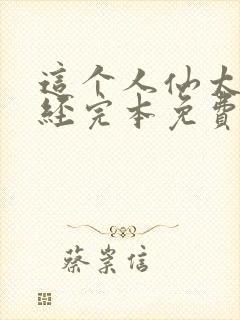 這个人仙太
經完本免費
蔡崇信